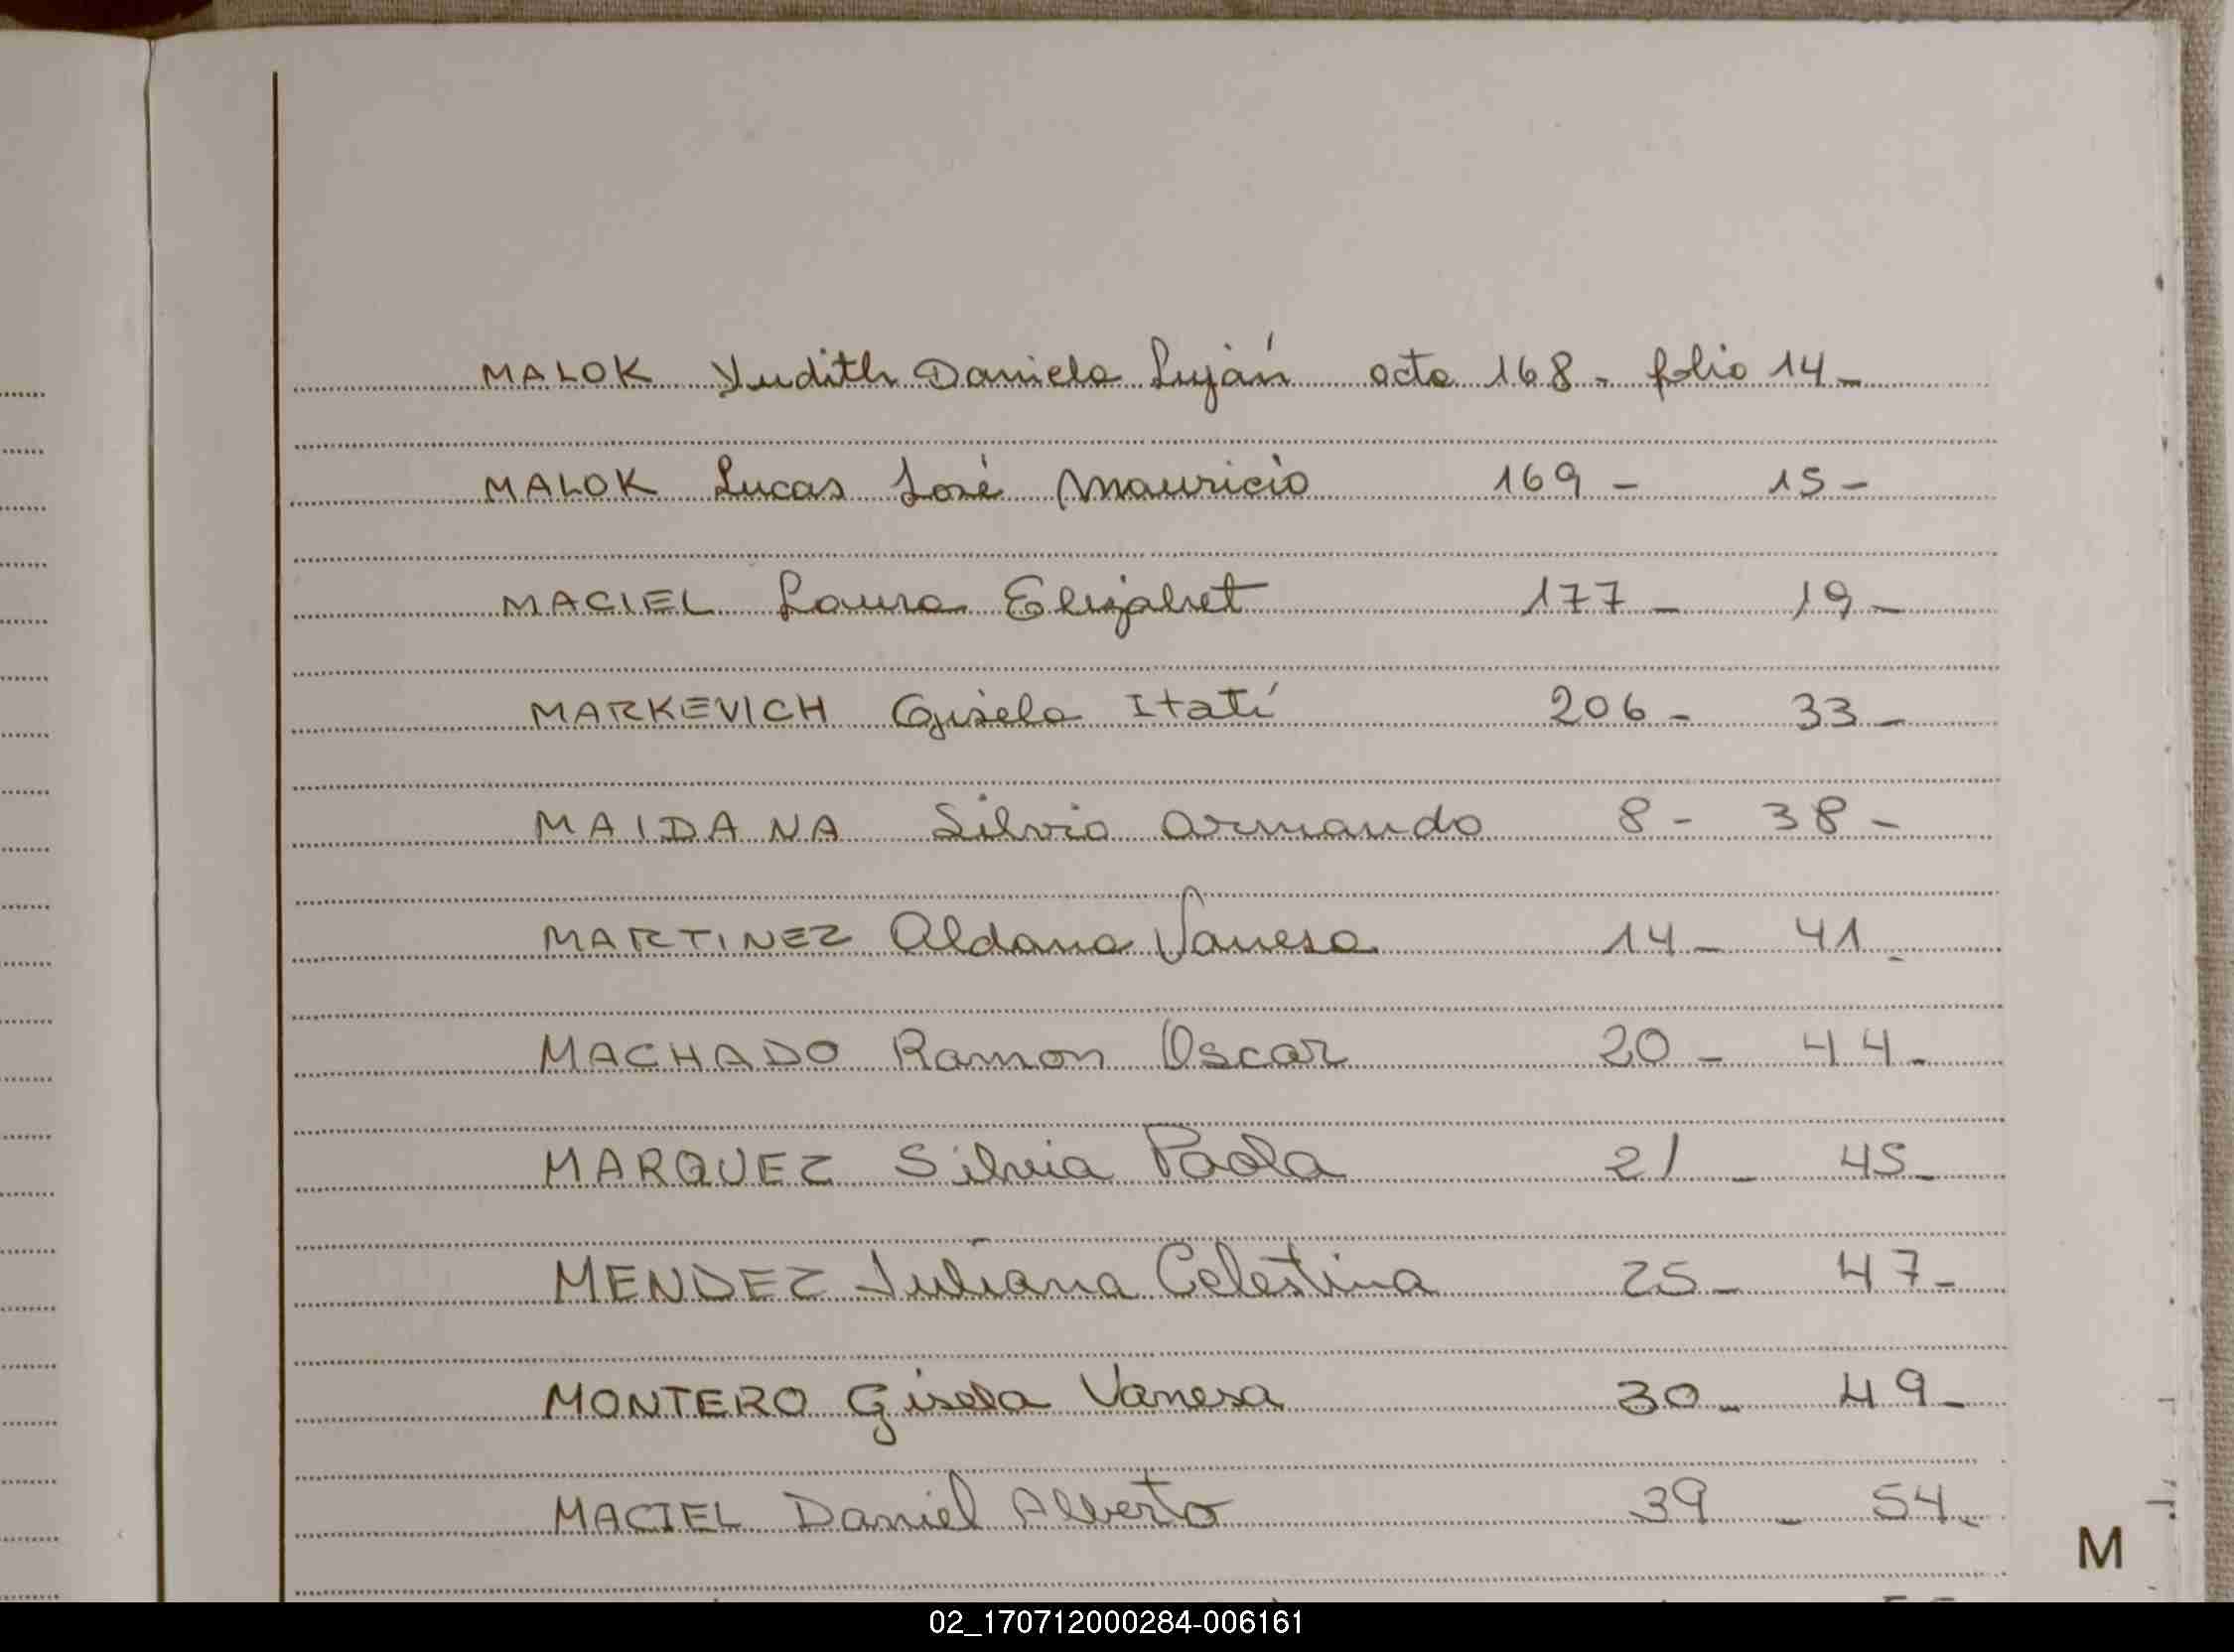 MALOK Yudith Daniela Luján acta 168 - folio 14 -
MALOK Lucas José Mauricio 169 - 15 -
MACIEL Laura Elizabet 177 - 19 -
MARKEVICH Gisela Itatí 206 - 33 -
MAIDANA Silvio Armando 8 - 38 -
MARTINEZ Aldana Vanesa 14 - 41 -
MACHADO Ramon Oscar 20 - 44 -
MARQUEZ Silvia Paola 21 - 45 -
MENDEZ Juliana Celestina 25 - 47 -
MONTERO Gisela Vanesa 30 - 49 -
MACIEL Daniel Alberto 39 - 54 -
M
02_170712000284-006161